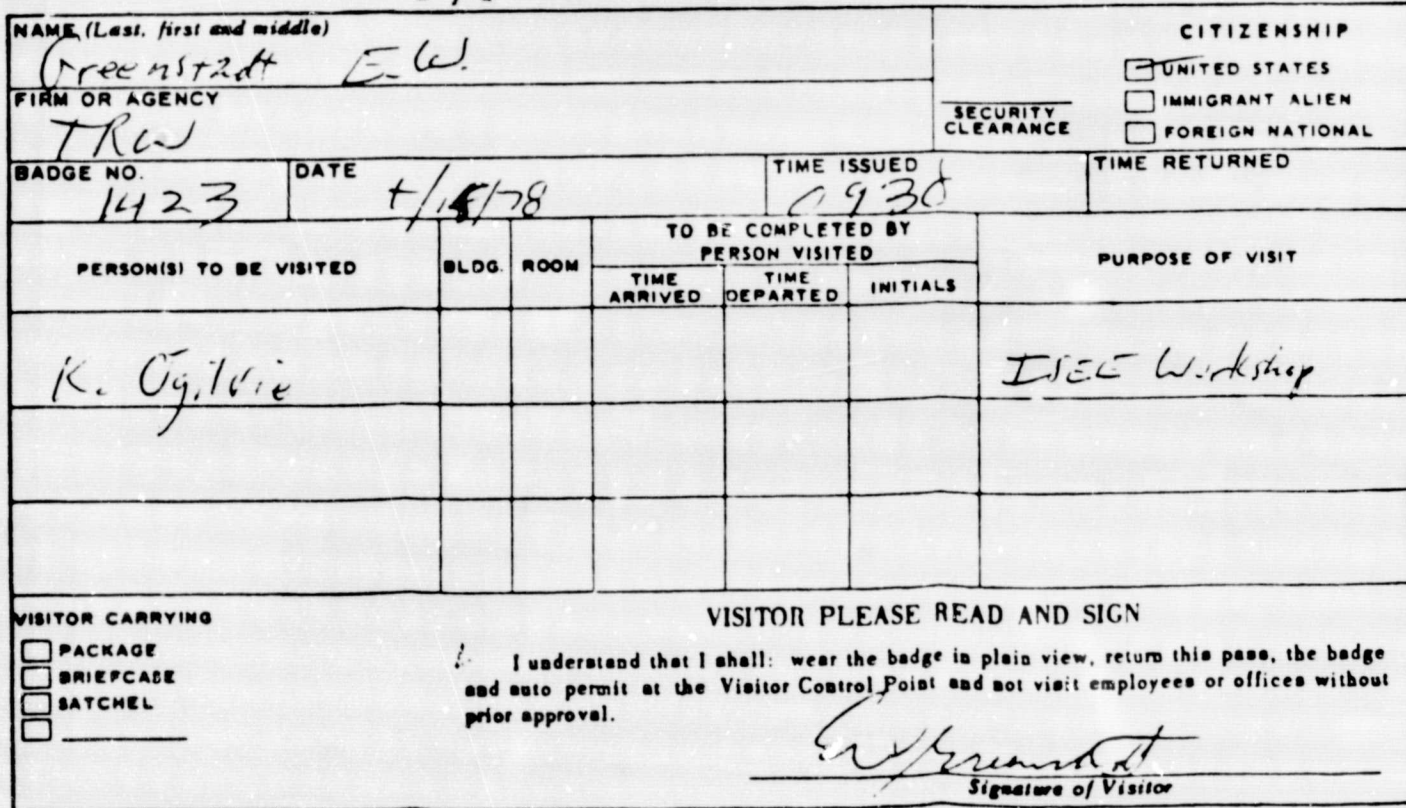 NAME (Last, first and middle)
Greenstadt E.W.
CITIZENSHIP
UNITED STATES
IMMIGRANT ALIEN
FOREIGN NATIONAL
SECURITY CLEARANCE
FIRM OR AGENCY
TRW
BADGE NO.
1423
DATE
TIME ISSUED
0930
TIME RETURNED
PERSON(S) TO BE VISITED
BLDG.
ROOM
TO BE COMPLETED BY
PERSON VISITED
TIME ARRIVED
TIME DEPARTED
INITIALS
PURPOSE OF VISIT
K. Ogilvie
ISEE Workshop
VISITOR CARRYING
PACKAGE
BRIEFCASE
SATCHEL
VISITOR PLEASE READ AND SIGN
I understand that I shall: wear the badge in plain view, return this pass, the badge
and auto permit at the Visitor Control Point and not visit employees or offices without
prior approval.
EW Greenstadt
Signature of Visitor